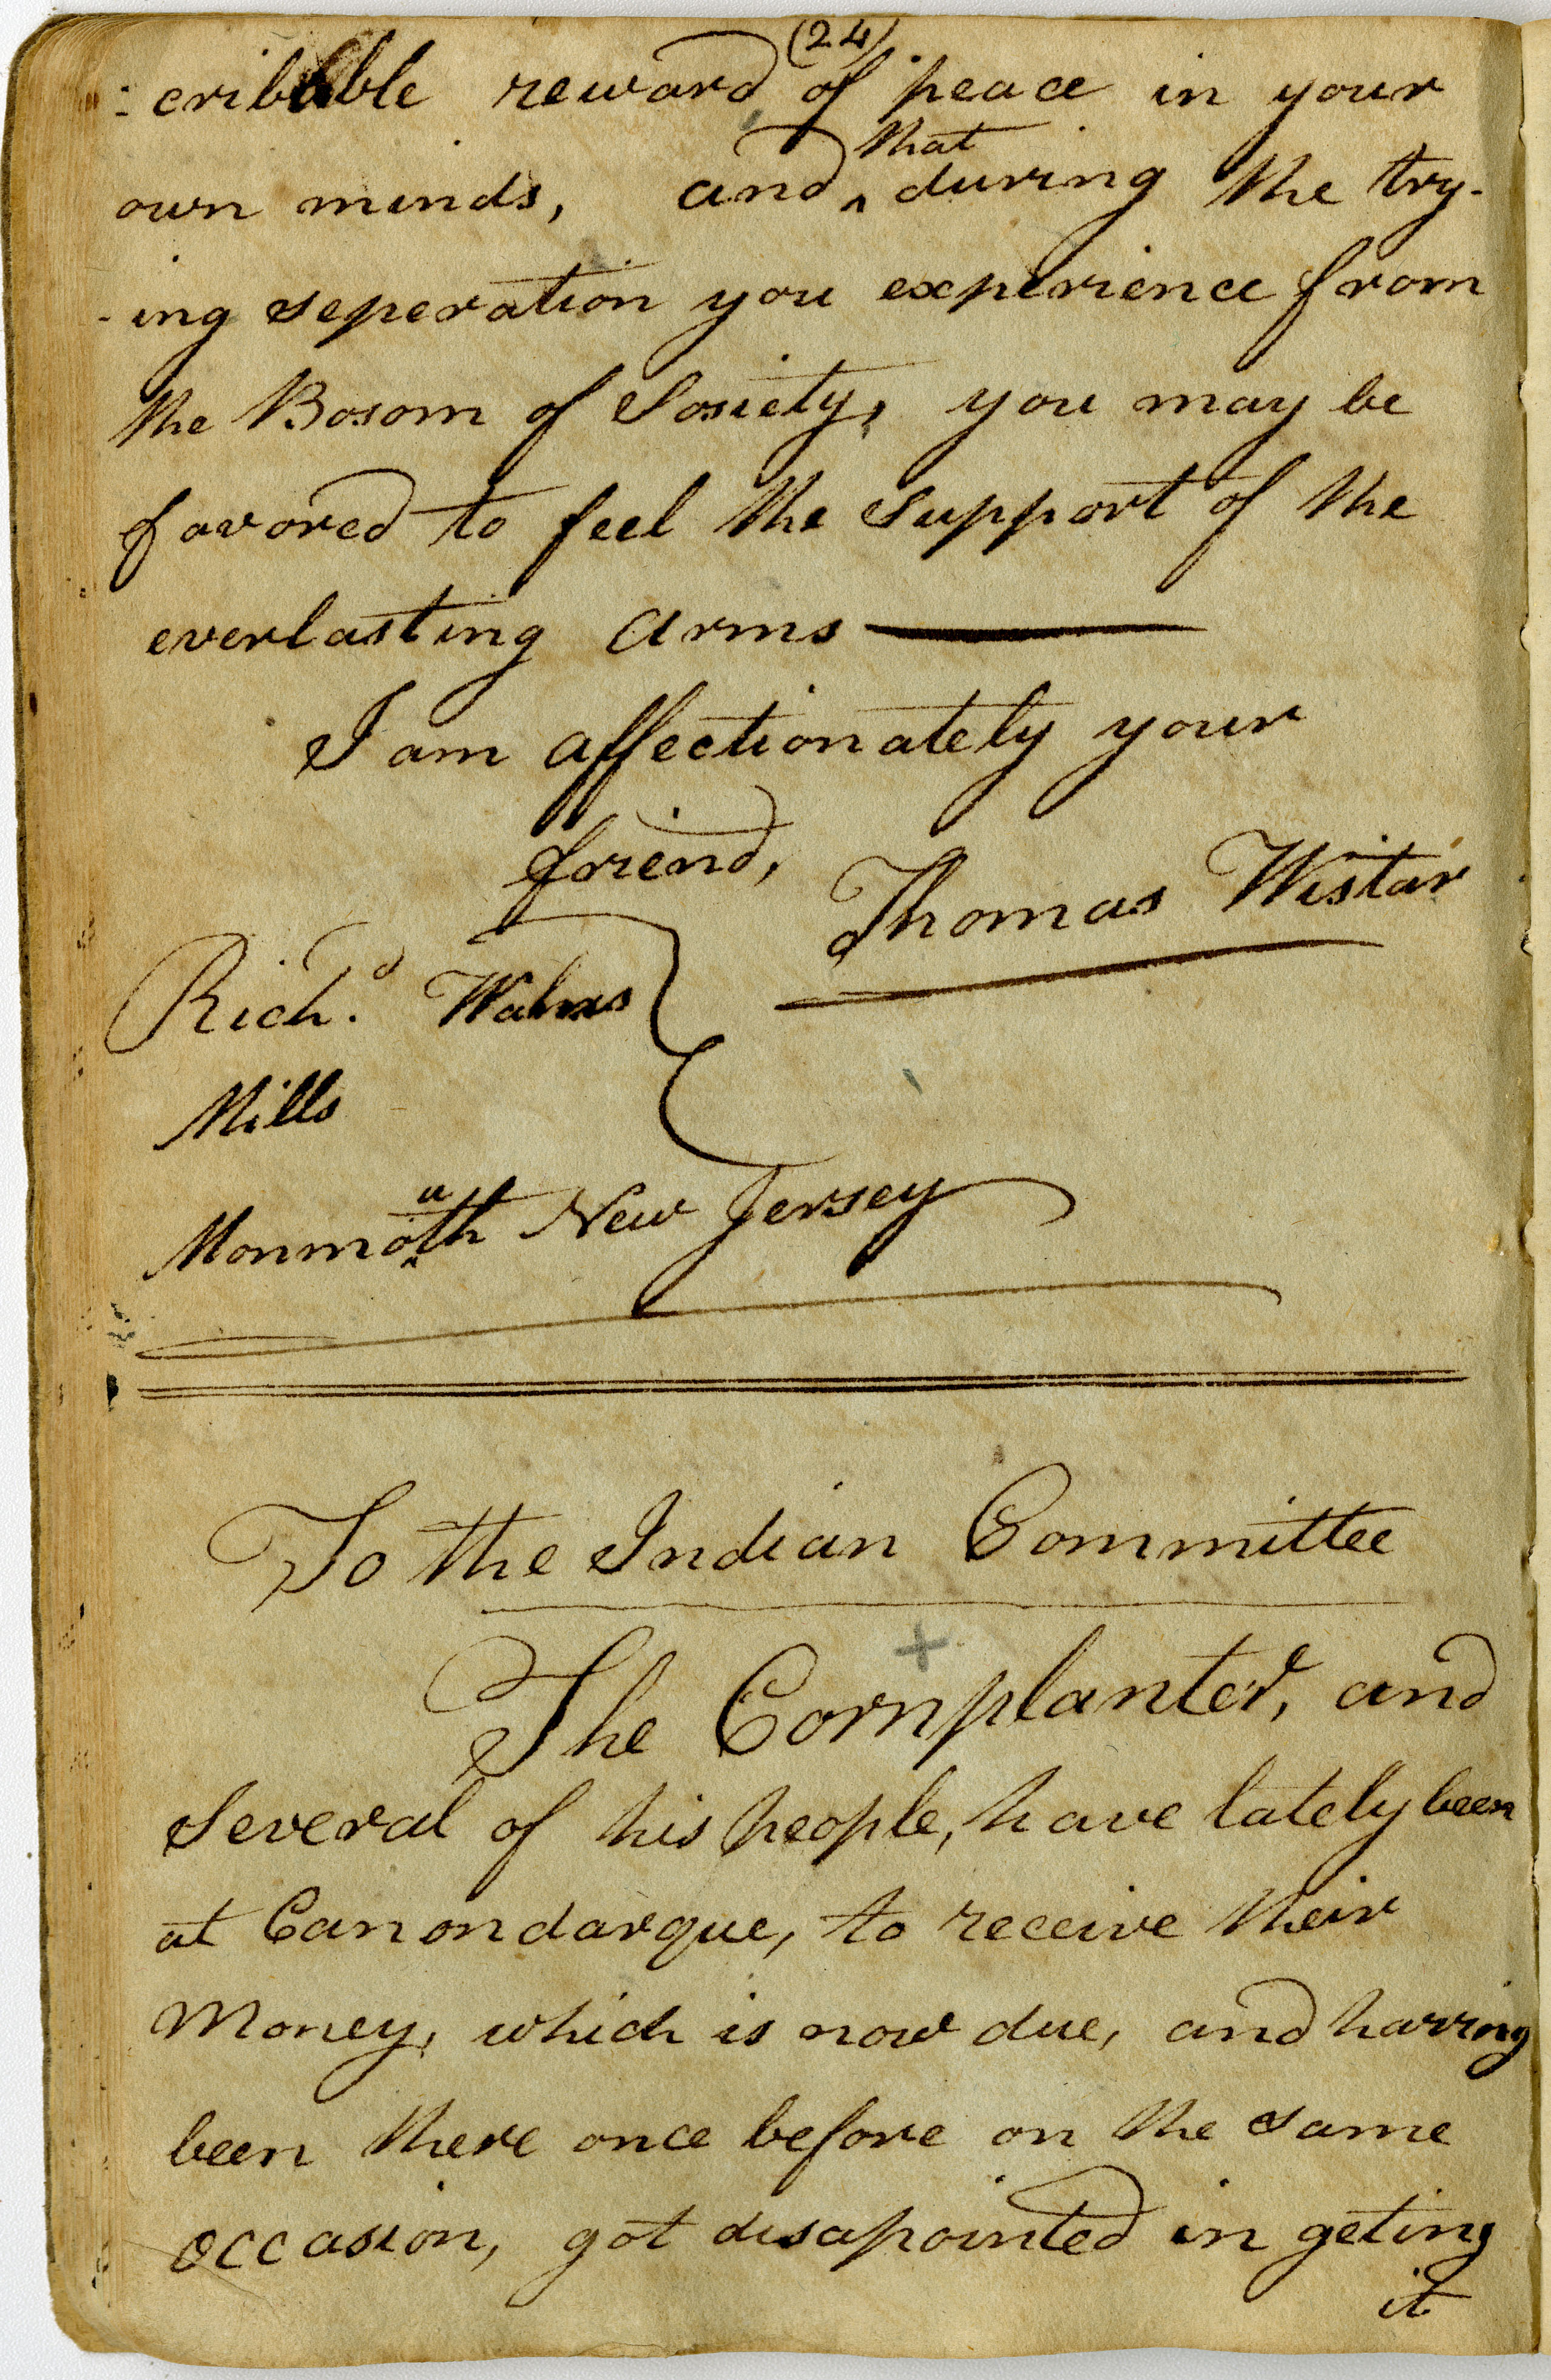 (24)
:cribable reward of peace in your
own minds, and ^that during the try-
-ing seperation you experience from
the Bosom of Sosiety, you may be
favored to feel the support of the
everlasting arms
I am affectionately your
friend,
Thomas Wistar
Rich.d Walns
Mills
Monmouth New Jersey
To the Indian Committee
The Cornplanter, and
Several of his people, have lately been
at Canondarque, to receive their
Money, which is now due, and having
been there once before on the same
occasion, got disapointed in geting
it